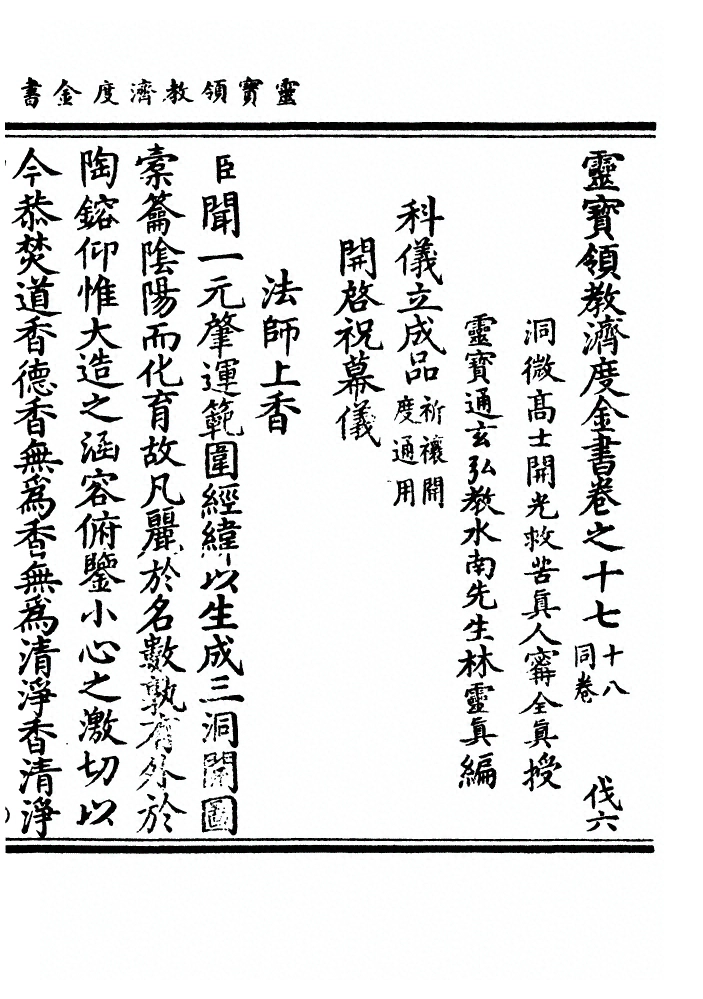 靈寳領教濟度金書
靈寳領教濟度金書卷之十七 十八同卷 伐六
洞微高士開光救苦眞人寗全眞授
靈寳通玄弘教水南先生林靈眞編
科儀立成品 祈禳開度通用
開啓祝幕儀
法師上香
臣聞一元肇運範圍經緯以生成三洞開圖
橐籥陰陽而化育故凡麗於名數孰有外於
陶鎔仰惟大造之涵容俯鑒小心之激切以
今恭焚道香德香無爲香無爲清淨香清淨